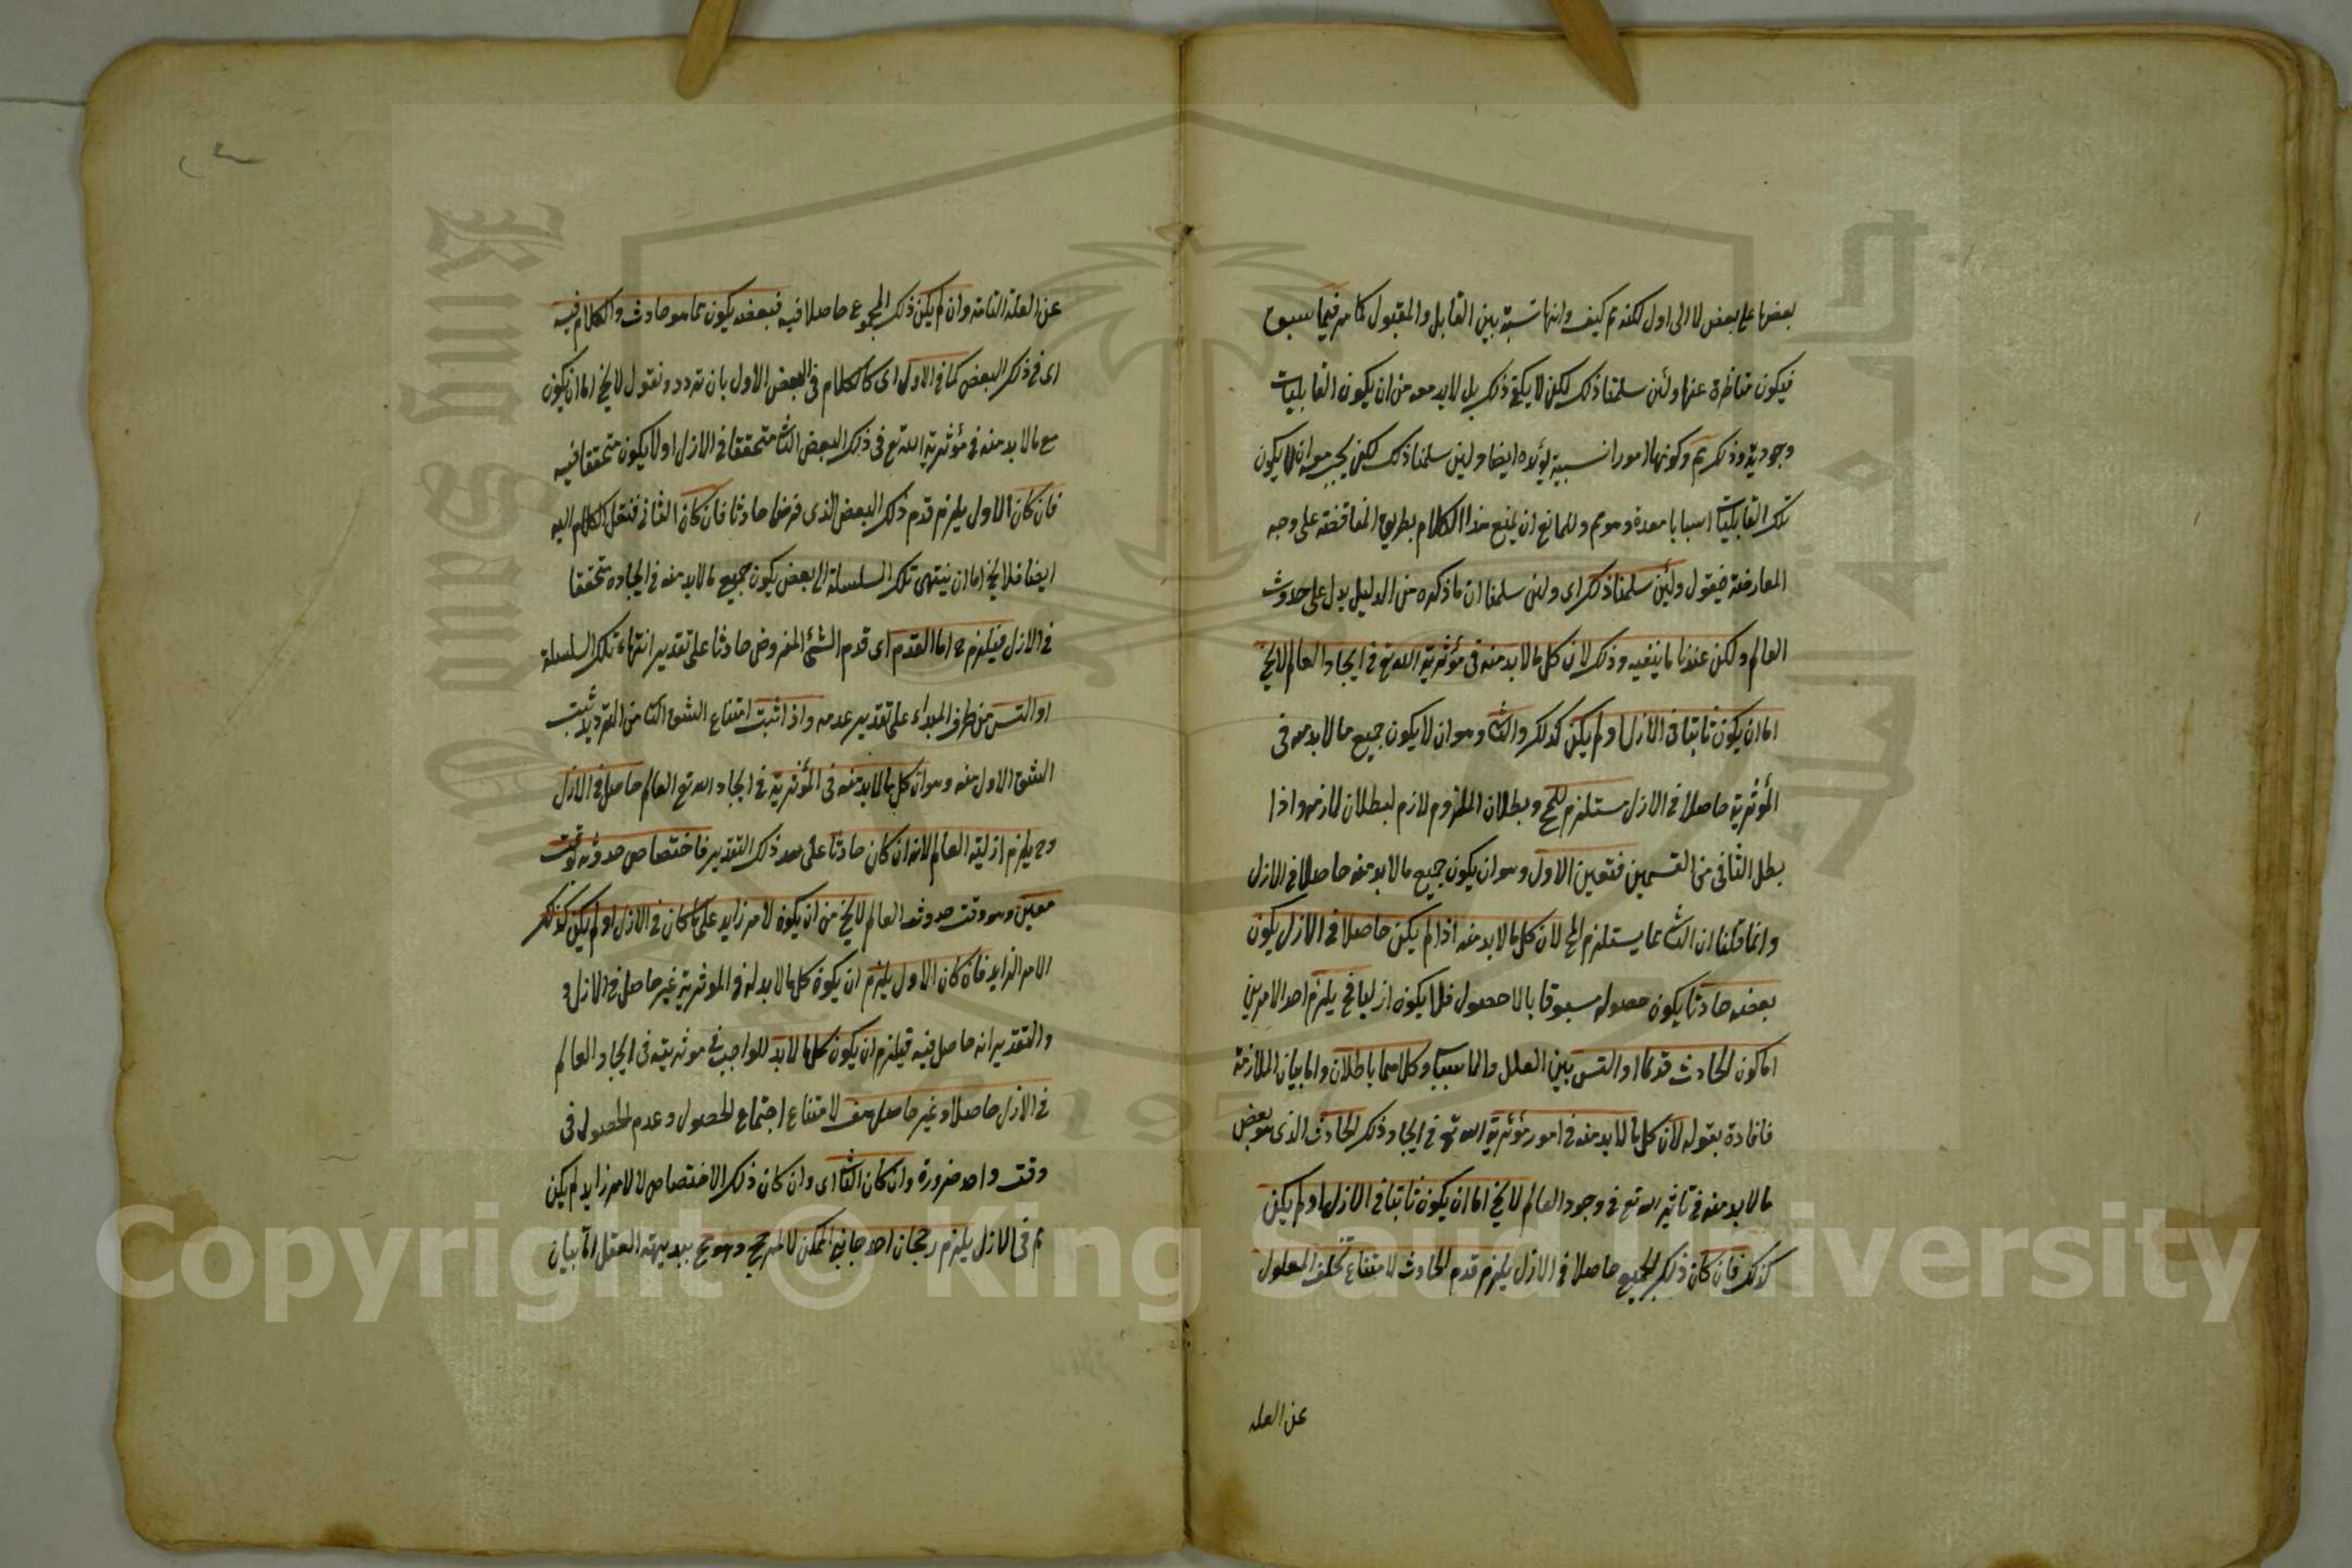 بعضها على بعض لا الى اول لكنه مم كيف وانها نسبة بين القابل والمقبول كما مر فيما سبق
فيكون متأخرة عنها ولئن سلمنا ذلك لكن لا يكفي ذلك بل لا بد معه من ان يكون القابليات
وجودية وذلك مم وكونها امورا نسبية ايضا ولئن سلمنا ذلك لكن يجب معه ان لا يكون
تلك القابليات اسبابا معدة وهو مم وللمانع ان يمنع هذا الكلام بطريق المناقضة على وجه
المعارضة فيقول ولئن سلمنا ذلك اى ولئن سلمنا ان ما ذكره من الدليل يدل على حدوث
العالم ولكن عندنا ما ينفيه وذلك لان كل ما لا بد منه فى مؤثرية الله تع فى ايجاد العالم لا يخ
اما ان يكون ثابتا فى الازل او لم يكن كذلك والثا وهو ان لا يكون جميع ما لا بد منه فى
المؤثرية حاصلا فى الازل مستلزم للمح وبطلان الملزوم لازم لبطلان لازمه واذا
بطل الثانى من القسمين فتعين الاول وهو ان يكون جميع ما لا بد منه حاصلا فى الازل
وانما قلنا ان الثا مما يستلزم المح لان كل ما لا بد منه اذا لم يكن حاصلا فى الازل يكون
بعضه حادثا يكون حصوله مسبوقا بالاحصول فلا يكون ازليا فح يلزم احد الامرين
اما كون الحادث قديما او التس بين العلل والاسباب وكلاهما باطلان واما بيان الملازمة
فافاده بقوله لان كل ما لا بد منه فى امور مؤثرية الله تع فى ايجاد ذلك الحادث الذى هو بعض
ما لا بد منه فى تاثير الله تع فى وجود العالم لا يخ اما ان يكون ثابتا فى الازل او لم يكن
كذلك فان كان ذلك الجميع حاصلا فى الازل يلزم قدم الحادث لامتناع تخلف المعلول
عن العله
عن العلة التامة وان لم يكن ذلك المجموع حاصلا فيه فبعضه يكون مما هو حادث والكلام فيه
اى فى ذلك البعض كما فى الاول اى كالكلام فى البعض الاول بان نردد ونقول لا يخ اما ان يكون
مع ما لا بد منه فى مؤثرية الله تع فى ذلك البعض الثا متحققا فى الازل او لا يكون متحققا فيه
فان كان الاول يلزم قدم ذلك البعض الذى فرضنا حادثا فان كان الثانى فننقل الكلام اليه
ايضا فلا يخ اما ان ينتهى تلك السلسلة الى بعض يكون جميع ما لا بد منه فى ايجاده متحققا
فى الازل فيلزم ح اما القدم اى قدم الشئ المفروض حادثا على تقدير انتهاء تلك السلسلة
او التس من طرف المبداء على تقدير عدمه واذا ثبت امتناع الشق الثا من الترديد ثبت
الشق الاول منه وهو ان كل ما لا بد منه فى المؤثرية فى ايجاد الله تع العالم حاصل فى الازل
وح يلزم ازلية العالم لانه ان كان حادثا على هذ ذلك التقدير فاختصاص حدوثه بوقت
معين وهو وقت حدوث العالم لا يخ من ان يكون لامر زايد على ما كان فى الازل او لم يكن كذلك
الامر الزايد فان كان الاول يلزم ان يكون كل ما لا بد له فى الموثرية غير حاصل فى الازل و
والتقدير انه حاصل فيه فيلزم ان يكون كل ما لا بد للواجب فى موثريته فى ايجاد العالم
فى الازل حاصلا وغير حاصل هف لامتناع اجتماع الحصول وعدم الحصول فى
وقت واحد ضرورة وان كان الثا اى وان كان ذلك الاختصاص لا لامر زايد لم يكن
ثم فى الازل يلزم رجحان احد جانبى الممكن لا لمرجح وهو مح ببديهة العقل اما بيان